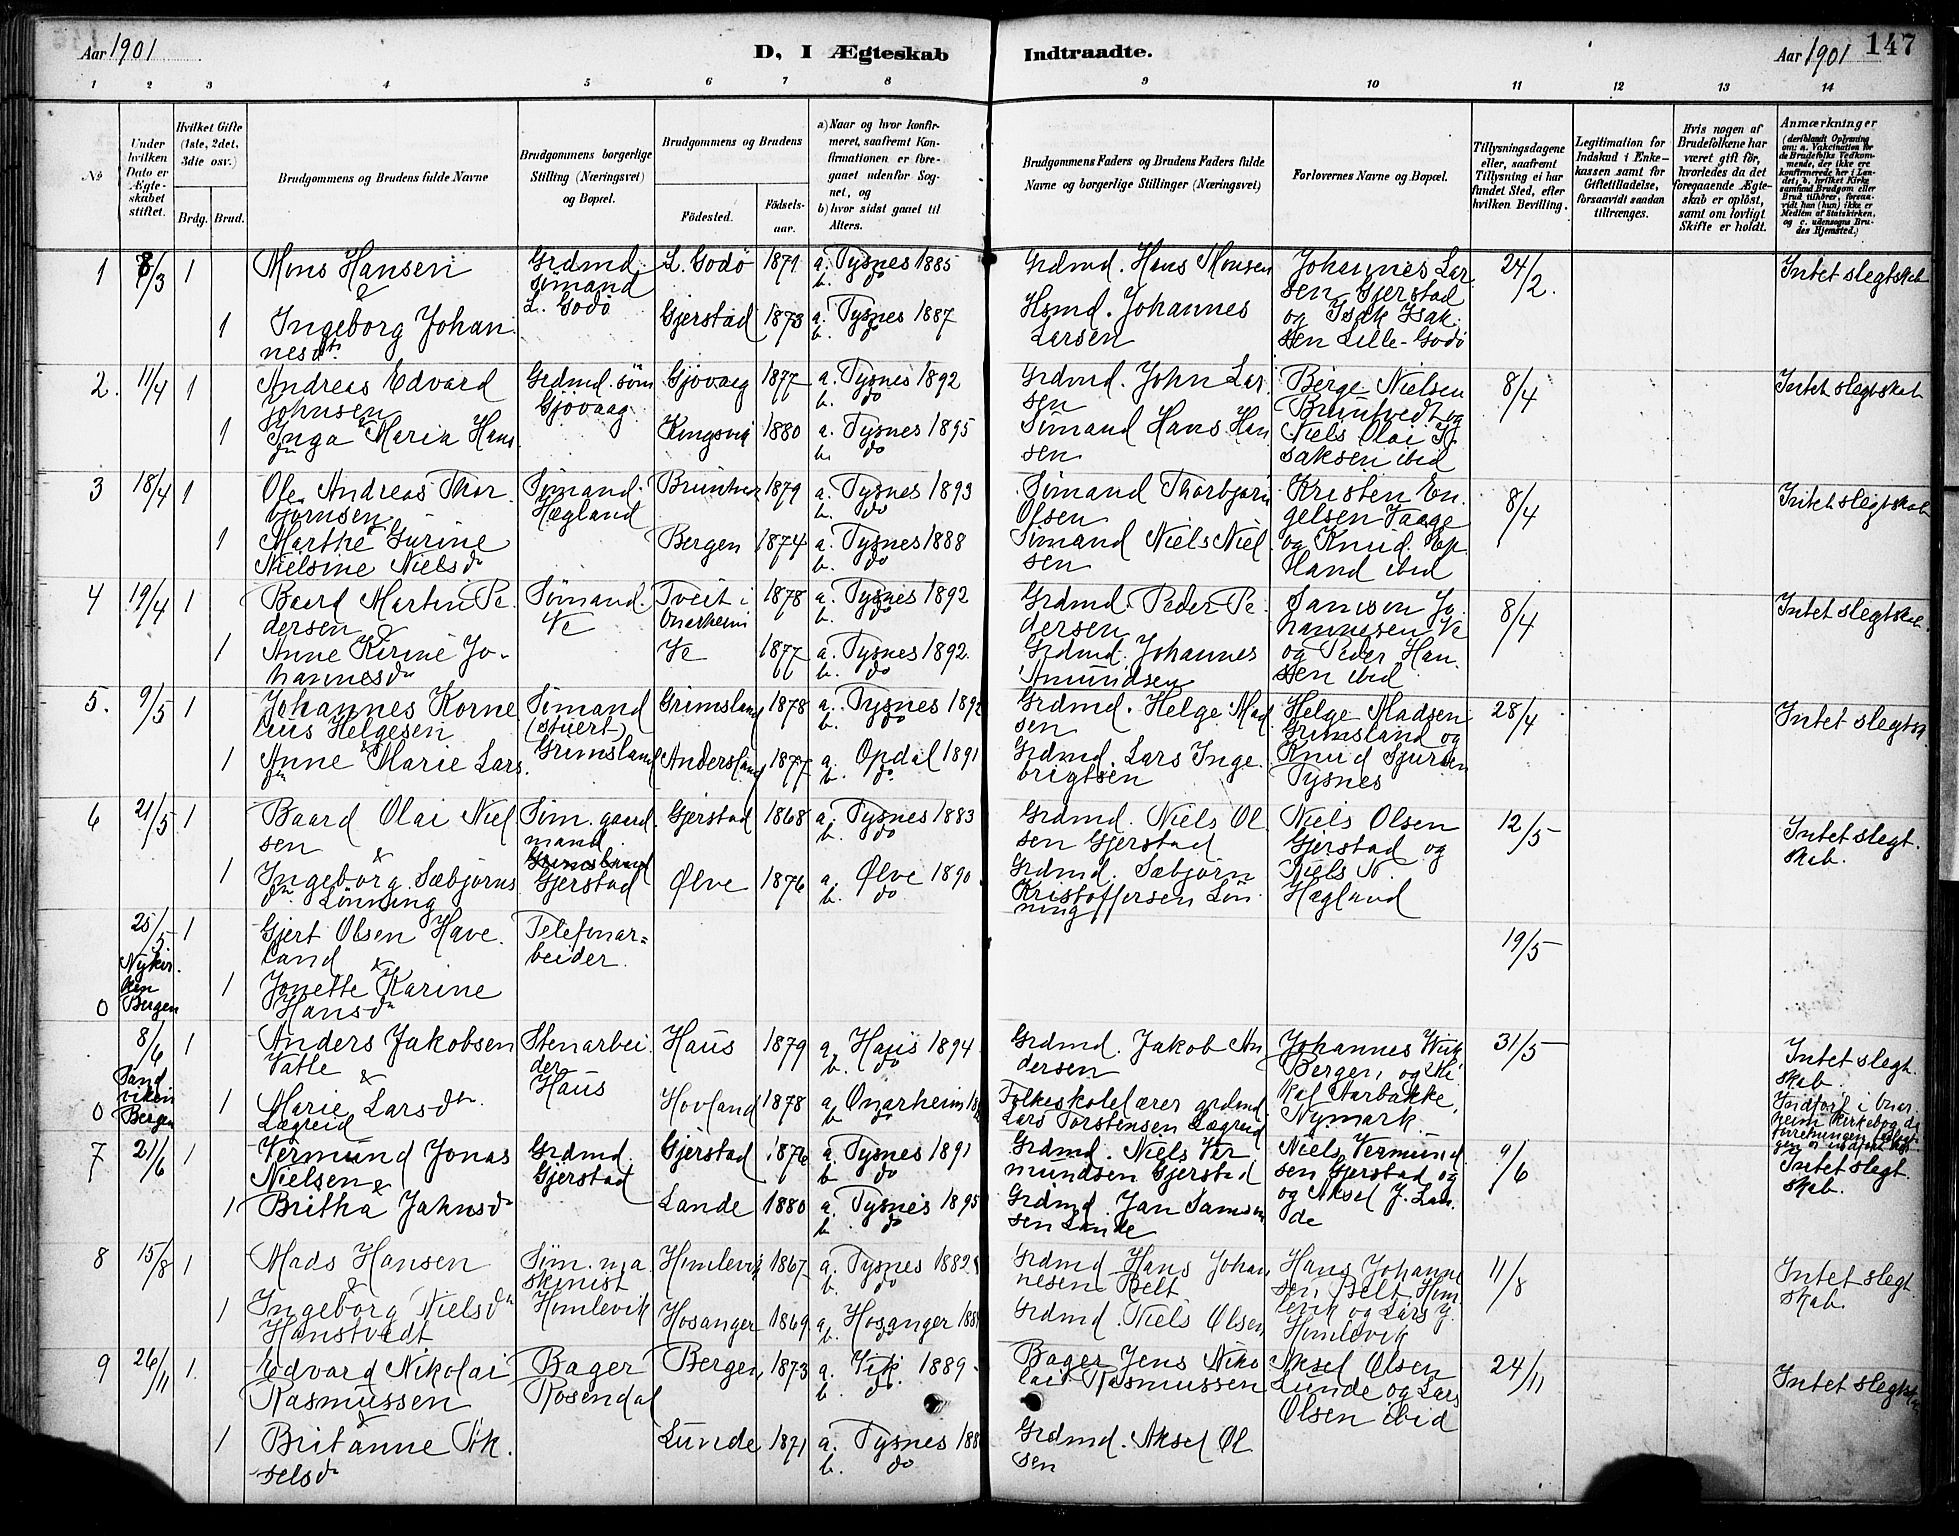 Aar 1901
D, I Ægteskab
Indtraadte.
Aar 1901
147
1 2 3 4 5 6 7 8 9 10 11 12 13 14
No
Under hvilken Dato er Ægteskabet stiftet.
Hvilket Gifte (1ste, 2det, 3die osv.)
Brdg. Brud.
Brudgommens og Brudens fulde Navne
Brudgommens borgerlige Stilling (Næringsvei) og Bopæl.
Brudgommens og Brudens
Födested.
Födsels-aar.
a) Naar og hvor konfirmeret, saafremt Konfirmationen er foregaaet udenfor Sognet, og
b) hvor sidst gaaet til Alters.
Brudgommens Faders og Brudens Faders fulde Navne og borgerlige Stillinger (Næringsvei)
Forlovernes Navne og Bopæl.
Tillysningsdagene eller, saafremt Tillysning ei har fundet Sted, efter hvilken Bevilling.
Legitimation for Indskud i Enkekassen samt for Giftetilladelse, forsaavidt saadan tiltrænges.
Hvis nogen af Brudefolkene har været gift för, hvorledes da det foregaaende Ægteskab er oplöst, samt om lovligt Skifte er holdt.
Anmærkninger
(deriblandt Oplysning om: a. Vakcination for de Brudefolks Vedkommende, der ikke ere konfirmerede her i Landet, b. hvilket Kirkesamfund Brudgom eller Brud tilhörer, forsaavidt han (hun) ikke er Medlem af Statskirken, og c. udensogns Brudes Hjemsted.)
1 8/3 1 Mons Hansen & Grdmd. sömand L. Godö L. Godö 1871 a. Tysnes 1885 b. do Grdmd. Hans Monsen Johannes Larsen Gjerstad og Isak Isaksen Lille-Godö 24/2. Intet slegtskab
1 Ingeborg Johannesdtr Gjerstad 1873 a. Tysnes 1887 b. do Hsmd. Johannes Larsen
2. 11/4 1 Andreas Edvard Johnsen & Grdmd. söm Gjövaag Gjövaag 1877 a. Tysnes 1892 b. do Grdmd. John Larsen Börge Nielsen Bruntvedt og Niels Olai Isaksen ibid 8/4 Intet slegtskab
1 Inga Maria Hansdtr 1880 a. Tysnes 1895 b. do Sömand Hans Hansen
3 18/4 1 Ole Andreas Thorbjörnsen Sömand. Hægland 1879 a. Tysnes 1893 b. do Sömand Thorbjörn Olsen Kristen Engelsen Vaage og Knud ibid 8/4 Intet slegtskab
1 Marthe Gurine Nielsine Nielsdr Bergen 1874 a. Tysnes 1888 b. do Sömand Niels Nielsen
4 19/4 1 Baard Martin Pedersen & Sömand. Ve Tveit i Onarheim 1878 a. Tysnes 1892 b. do Grdmd. Peder Pedersen Samson Johannesen Ve og Peder Hansen ibid 8/4 Intet slegtskab
1 Anne Karine Johannesdr Ve 1877 a. Tysnes 1892. b. do Grdmd. Johannes Amundsen
5. 9/5 1 Johannes Kornelius Helgesen & Sömand (stuert) Grimsland Grimsland 1878 a. Tysnes b. do Grdmd. Helge Madsen Helge Madsen Grimsland og Knud Sjursen Tysnes 28/4 Intet slegtsk.
1 Anne Marie Larsdr Andersland 1877 a. Opdal 1891 b. do Grdmd. Lars Ingebrigtsen
6 21/5 1 Baard Olai Nielsen & Söm. gaardmand Gjerstad Gjerstad 1868 a. Tysnes 1883 b. do Grdmd. Niels Olsen Gjerstad Niels Olsen Gjerstad og Niels N. Hægland 12/5 Intet slegtskab.
1 Ingeborg Sæbjörnsdr Lönning Ølve 1876 a. Ølve 1890. b. do Grdmd. Sæbjörn Kristoffersen Lönning
0 25/5 Nykirken Bergen 1 Gjert Olsen Haveland & Telefonarbeider. 19/5
1 Jonette Karine Hansdr
0 8/6 Sandviken Bergen 1 Anders Jakobsen Vatle & Stenarbeider Haus Haus 1879 a. Haus 1894 b. do Grdmd. Jakob Andersen Johannes Bergen, og Mikal Aarbakke, Nymark. 31/5 Intet slegtskab.
1 Marie Larsdtr. Lægreid Hovland 1878 a. Onarheim b. do Folkeskolelærer grdmd. Lars Torstensen Lægreid
Indfört i Onarheim Kirkebog da
7 21/6 1 Vermund Jonas Nielsen & Grdmd. Gjerstad Gjerstad 1876 a. Tysnes 1891 b. do Grdmd. Niels Vermundsen Gjerstad Niels Vermundsen Gjerstad og og Aksel J. Lande 9/6 Intet slegtskab.
1 Britha Jahnsdr Lande 1880 a. Tysnes 1895 b. do Grdmd. Jan Samsonsen Lande
8 15/8 1 Mads Hansen & Söm. maskinist Humlevik Humlevik 1867 a. Tysnes 1882. b. do Grdmd Hans Johannesen Belt Hans Johannesen Belt Humlevik og Lars J. Humlevik 11/8 Intet slegtskab.
1 Ingeborg Nielsdr Hanstvedt Hosanger 1869 a. Hosanger b. do Grdmd. Niels Olsen
9 26/11 1. Edvard Nikolai Rasmussen & Bager Rosendal Bergen 1873 a. Vik. 1889 b. do Bager Jens Nikolai Rasmussen Aksel Olsen Lunde og Lars Olsen ibid 24/11 Intet slegtsk.
1 Britanne Akselsdr Lunde 1871 a. Tysnes b. do Grdmd. Aksel Olsen